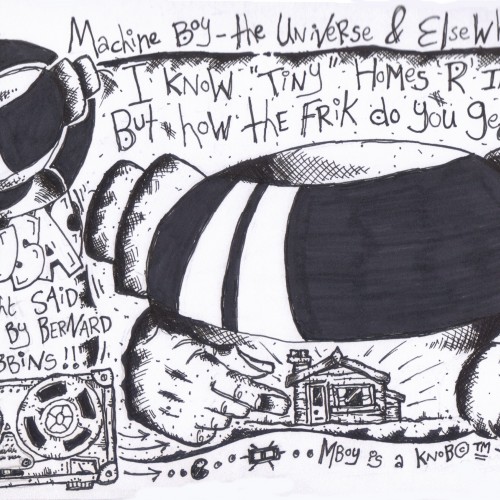 Machine Boy - the Universe & Elsewh
I know "Tiny" Homes R' I
But how the Frik do you ge
USA
he said
by Bernard
bbins!!
Mboy is a Knob©™